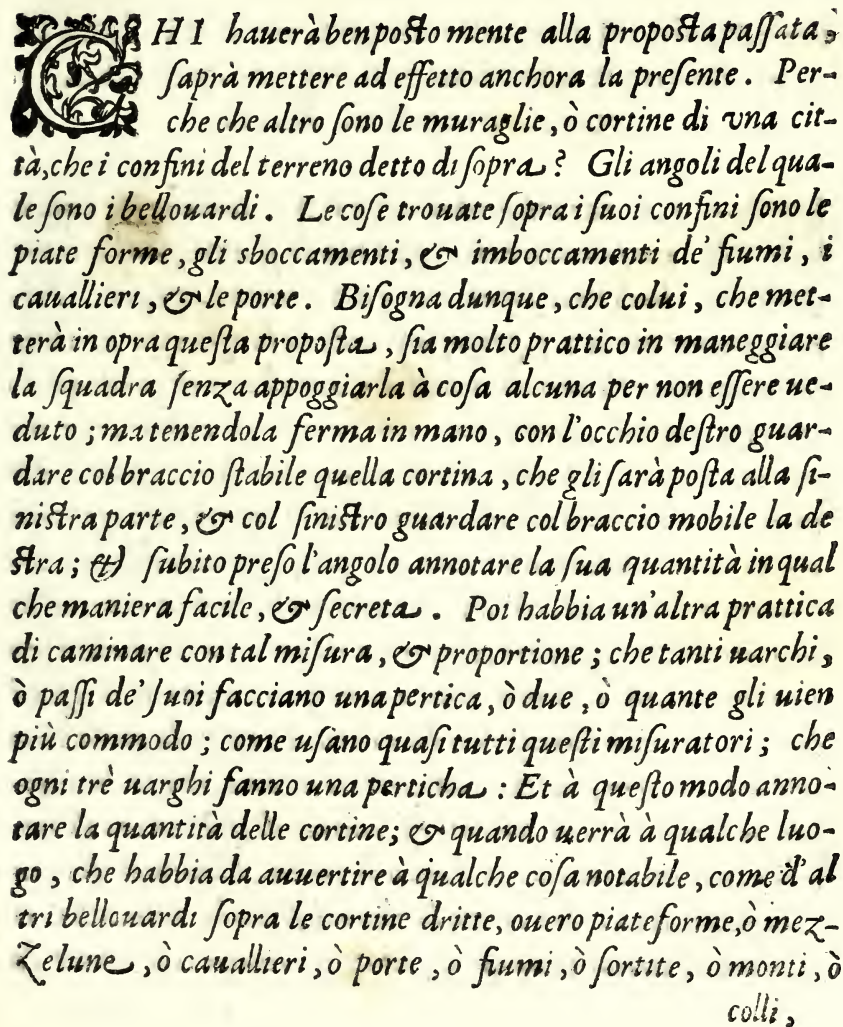 CHI hauerà ben posto mente alla proposta passata,
saprà mettere ad effetto anchora la presente. Per-
che che altro sono le muraglie, ò cortine di vna cit-
tà, che i confini del terreno detto di sopra? Gli angoli del qua-
le sono i bellouardi. Le cose trouate sopra i suoi confini sono le
piate forme, gli sboccamenti, & imboccamenti de' fiumi, i
cauallieri, & le porte. Bisogna dunque, che colui, che met-
terà in opra questa proposta, sia molto prattico in maneggiare
la squadra senza appoggiarla à cosa alcuna per non essere ue-
duto; ma tenendola ferma in mano, con l'occhio destro guar-
dare col braccio stabile quella cortina, che gli sarà posta alla si-
nistra parte, & col sinistro guardare col braccio mobile la de
stra; & subito preso l'angolo annotare la sua quantità in qual
che maniera facile, & secreta. Poi habbia un'altra prattica
di caminare con tal misura, & proportione; che tanti uarchi,
ò passi de' suoi facciano una pertica, ò due, ò quante gli uien
più commodo; come usano quasi tutti questi misuratori; che
ogni trè uarghi fanno una perticha: Et à questo modo anno-
tare la quantità delle cortine; & quando uerrà à qualche luo-
go, che habbia da auuertire à qualche cosa notabile, come d'al
tri bellouardi sopra le cortine dritte, ouero piateforme, ò mez-
zelune, ò cauallieri, ò porte, ò fiumi, ò sortite, ò monti, ò
colli,